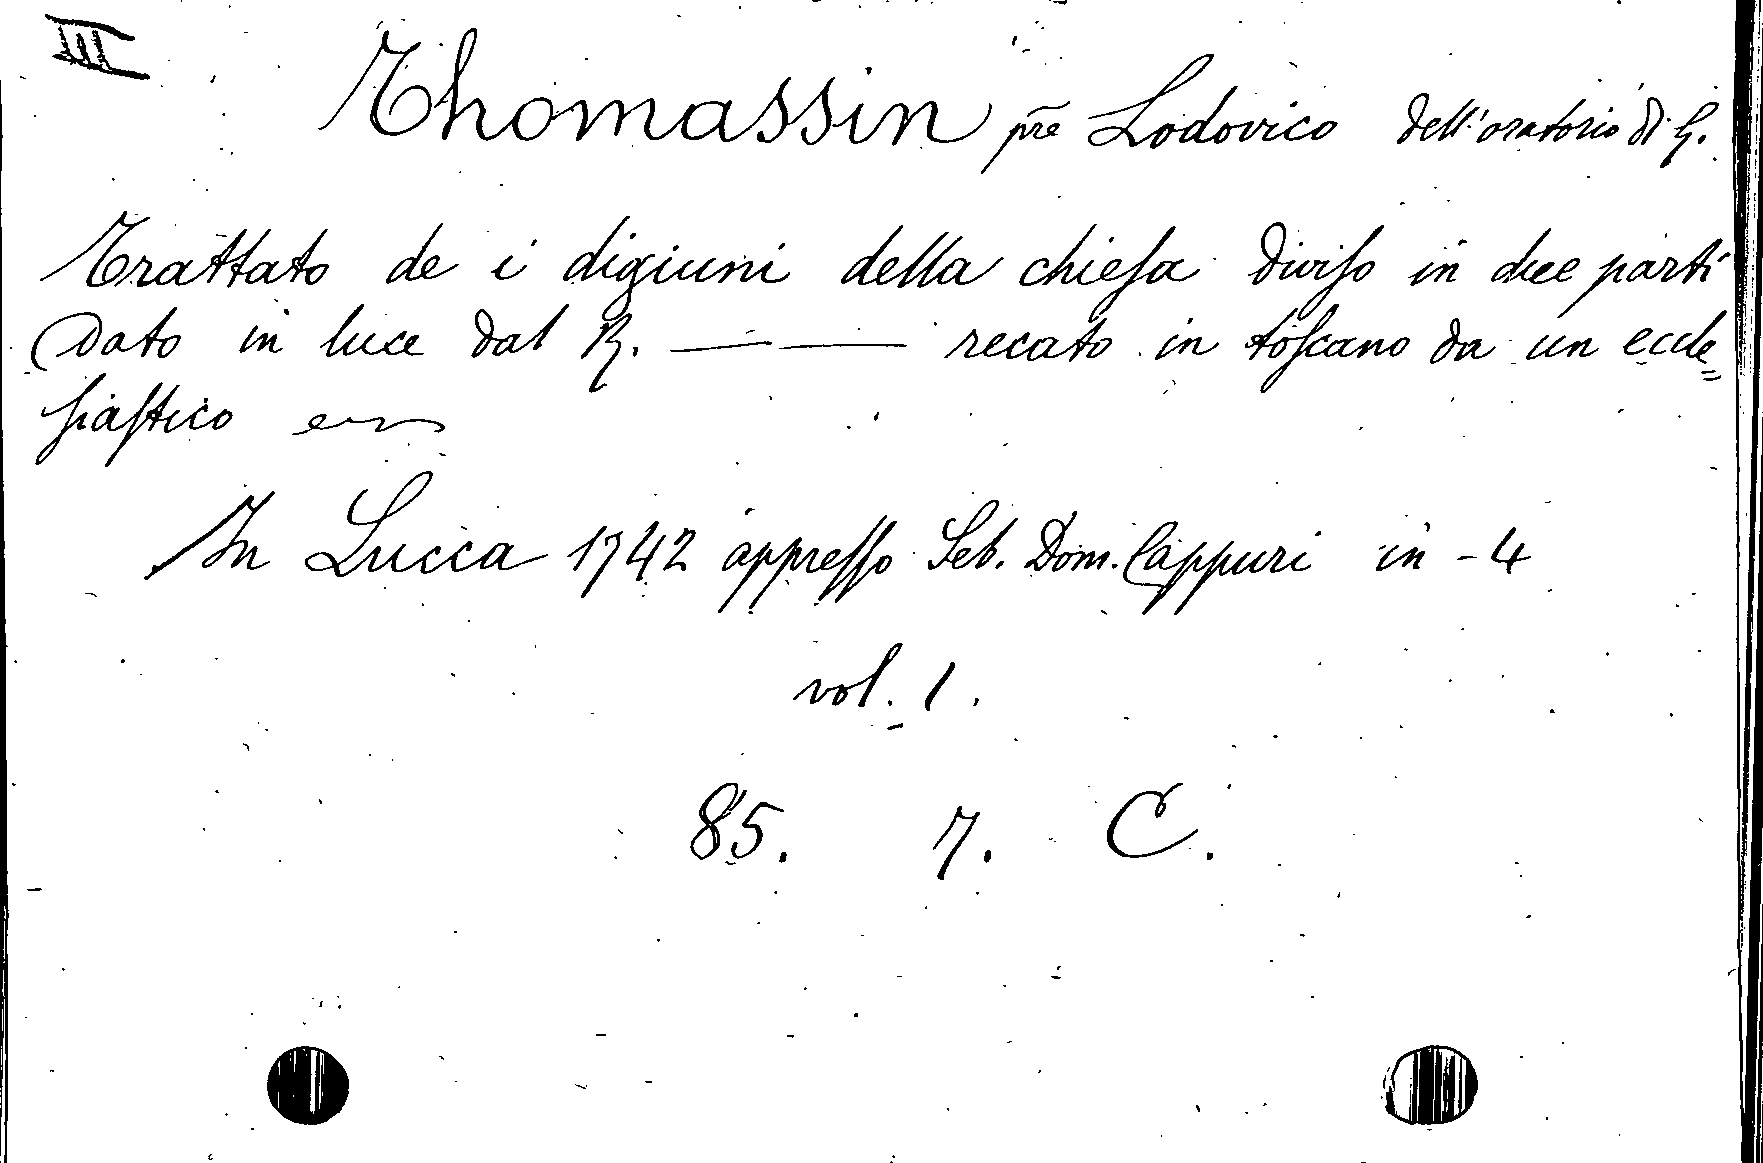 III
Thomassin prē Lodovico dell'oratorio di G.
Trattato de i digiuni della chieſa diviſo in due parti
dato in luce dal R. —— —— recato in toſcano da un eccle=
ſiaſtico
In Lucca 1742 appreſſo Seb. Dom. Cappuri in - 4
vol. 1.
85. 7. C.